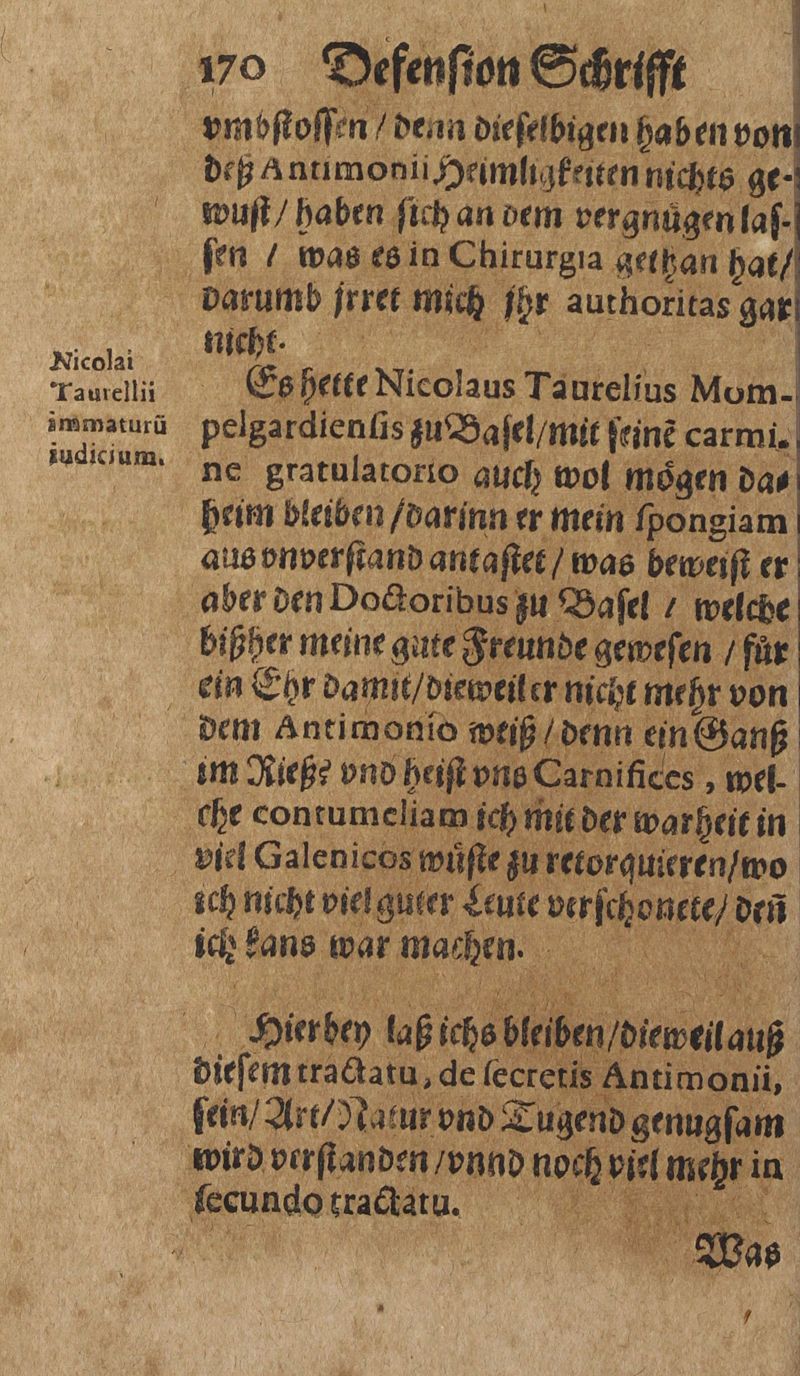 170 Defenſion Schrifft
vmbſtoſſen / denn dieſelbigen haben von
deß Antimonii Heimligkeiten nichts ge-
wuſt / haben ſich an dem vergnuͤgen laſ-
ſen / was es in Chirurgia gethan hat /
darumb jrret mich jhr authoritas gar
nicht.
Nicolai
Taurellii
immaturū
iudicium.
Es hette Nicolaus Taurelius Mom-
pelgardienſis zu Baſel / mit ſeinẽ carmi-
ne gratulatorio auch wol moͤgen da-
heim bleiben / darinn er mein ſpongiam
aus vnverſtand antaſtet / was beweiſt er
aber den Doctoribus zu Baſel / welche
bißher meine gute Freunde geweſen / fuͤr
ein Ehr damit / dieweil er nicht mehr von
dem Antimonio weiß / denn ein Ganß
im Rieß? vnd heiſt vns Carnifices, wel-
che contumeliam ich mit der warheit in
viel Galenicos wuͤſte zu retorquieren / wo
ich nicht viel guter Leute verſchonete / deñ
ich kans war machen.
Hierbey laß ichs bleiben / dieweil auß
dieſem tractatu, de ſecretis Antimonii,
ſein / Art / Natur vnd Tugend genugſam
wird verſtanden / vnnd noch viel mehr in
ſecundo tractatu.
Was